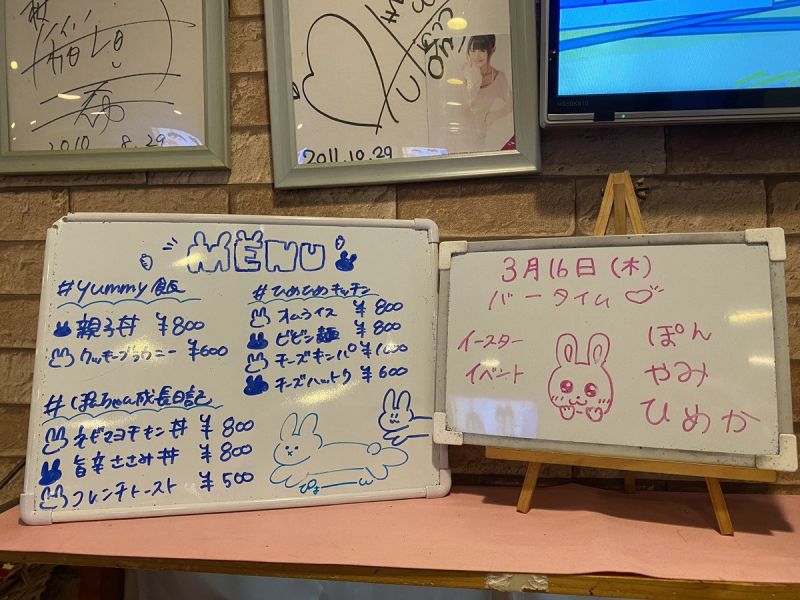 2010 8.29
2011.10.29
MENU
#yummy飯
親子丼 ¥800
クッキーブラウニー ¥600
#ぽんちゃん成長日記
ネギマヨチキン丼 ¥800
旨辛ささみ丼 ¥800
フレンチトースト ¥500
#ひめひめキッチン
オムライス ¥800
ビビン麺 ¥800
チーズキンパ ¥1000
チーズハットク ¥600
ぴょ
3月16日(木)
バータイム
イースター
イベント
ぽん
やみ
ひめか